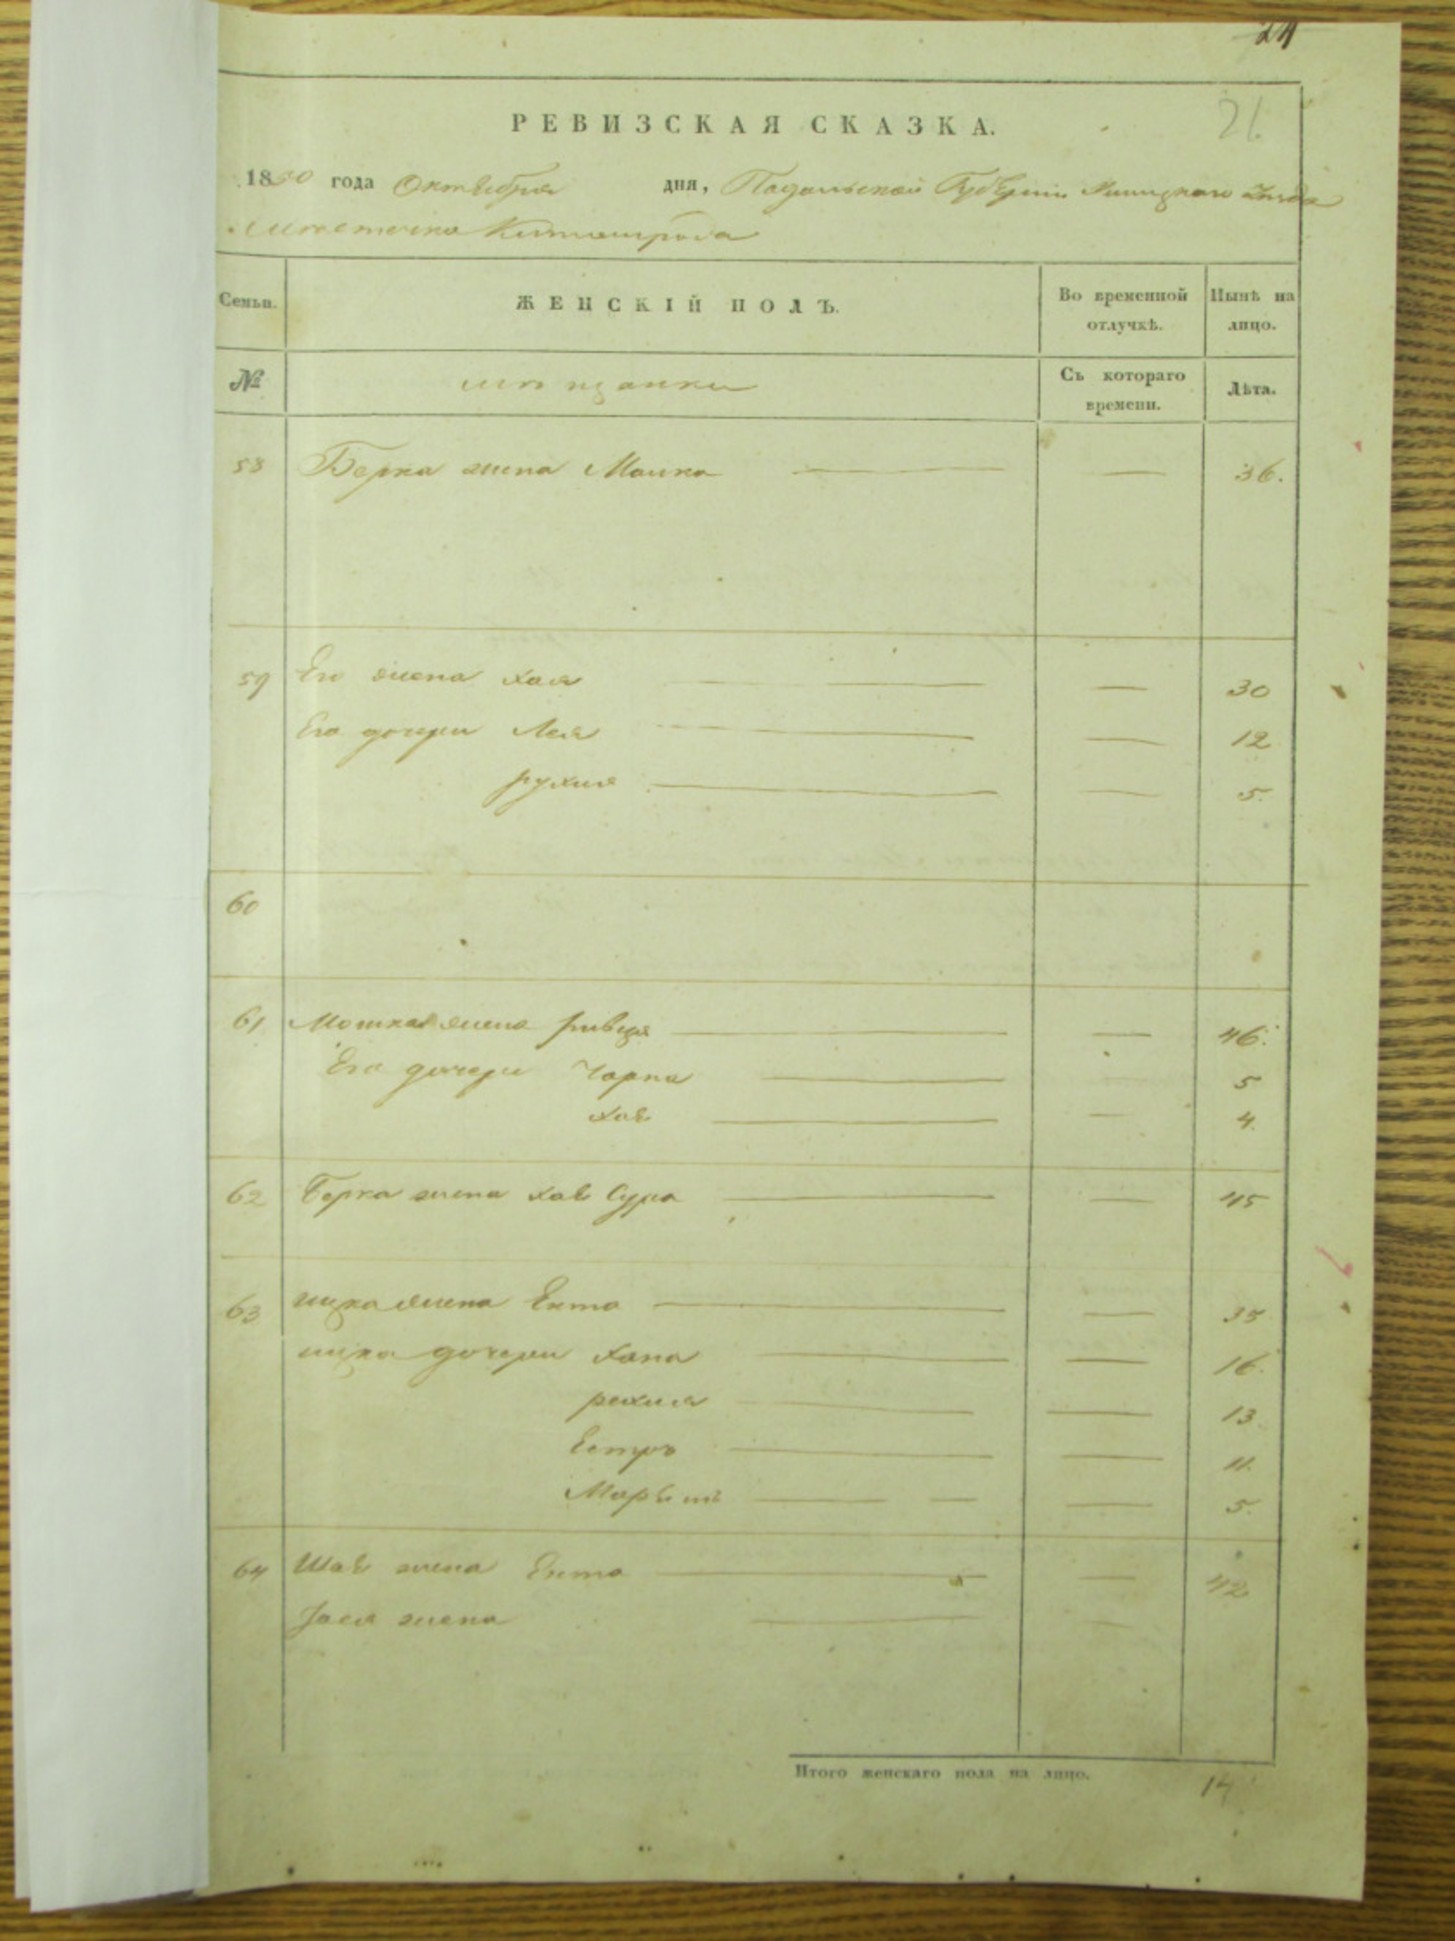 24
21.
РЕВИЗСКАЯ СКАЗКА.
1850 года Октября дня, Подольской Губернии Уезда
Местечка Китайгорода
Семьи. ЖЕНСКІЙ ПОЛЪ. Во временной отлучкѣ. Нынѣ на лицо.
№ мѣщанки Съ котораго времени. Лѣта.
58 Берка жена Малка — — 36.
59 Его жена Хая — — 30
Его дочери Лея — — 12
рухля — — 5.
60
61 Мошка жена ривця — — 46.
Его дочери Чарна — — 5
Хая — — 4.
62 Берка жена Хая Сура — — 45
63 ицка жена Екта — — 35
ицка дочери Хана — — 16.
рихля — — 13
Естръ — — 11.
Марьямъ — — 5.
64 жена Екта — — 42
жена — —
Итого женскаго пола на лицо. 14